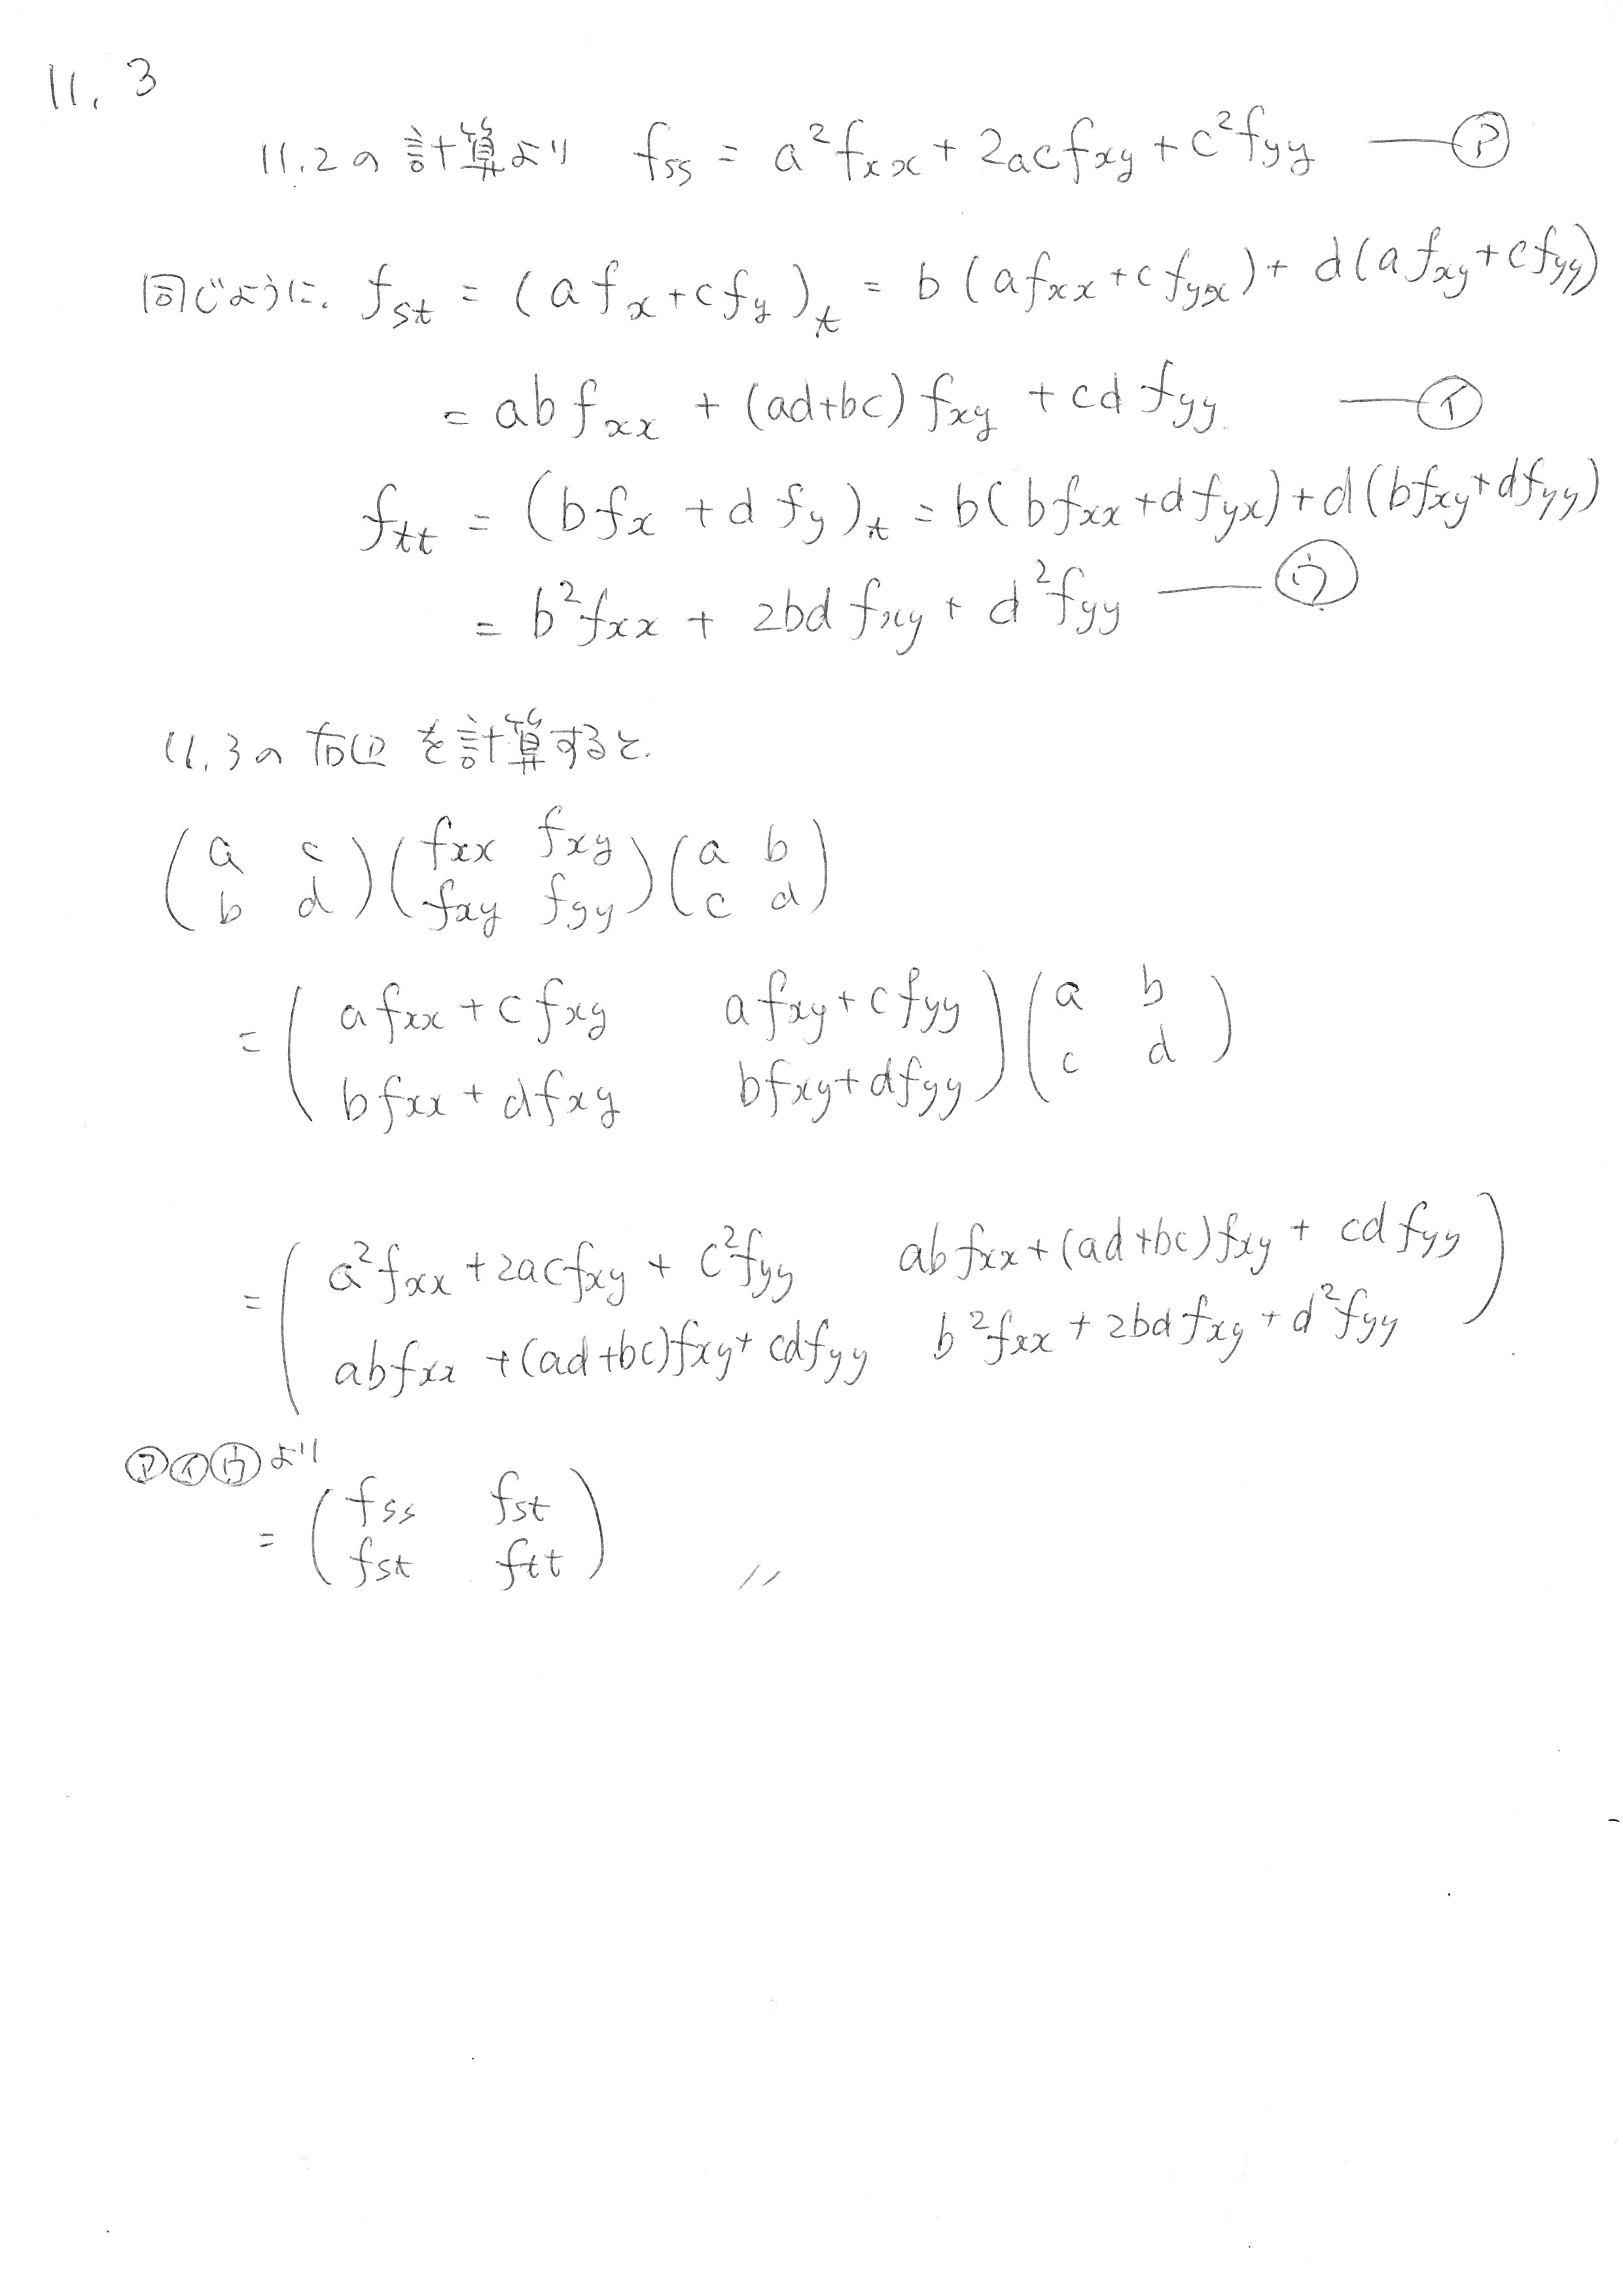 11.3
11.2の計算より f_{ss} = a^2f_{xx} + 2acf_{xy} + c^2f_{yy} ―㋐
同じように. f_{st} = (af_x+cf_y)_t = b(af_{xx}+cf_{yx}) + d(af_{xy}+cf_{yy})
= abf_{xx} + (ad+bc)f_{xy} + cdf_{yy}. ―㋑
f_{tt} = (bf_x + df_y)_t = b(bf_{xx}+df_{yx}) + d(bf_{xy}+df_{yy})
= b^2f_{xx} + 2bdf_{xy} + d^2f_{yy} ―㋒
11.3の右辺を計算すると.
(a c) (f_{xx} f_{xy}) (a b)
(b d) (f_{xy} f_{yy}) (c d)
= (af_{xx}+cf_{xy} af_{xy}+cf_{yy}) (a b)
(bf_{xx}+df_{xy} bf_{xy}+df_{yy}) (c d)
= (a^2f_{xx}+2acf_{xy}+c^2f_{yy} abf_{xx}+(ad+bc)f_{xy}+cdf_{yy})
(abf_{xx}+(ad+bc)f_{xy}+cdf_{yy} b^2f_{xx}+2bdf_{xy}+d^2f_{yy})
㋐㋑㋒より
= (f_{ss} f_{st})
(f_{st} f_{tt}) //